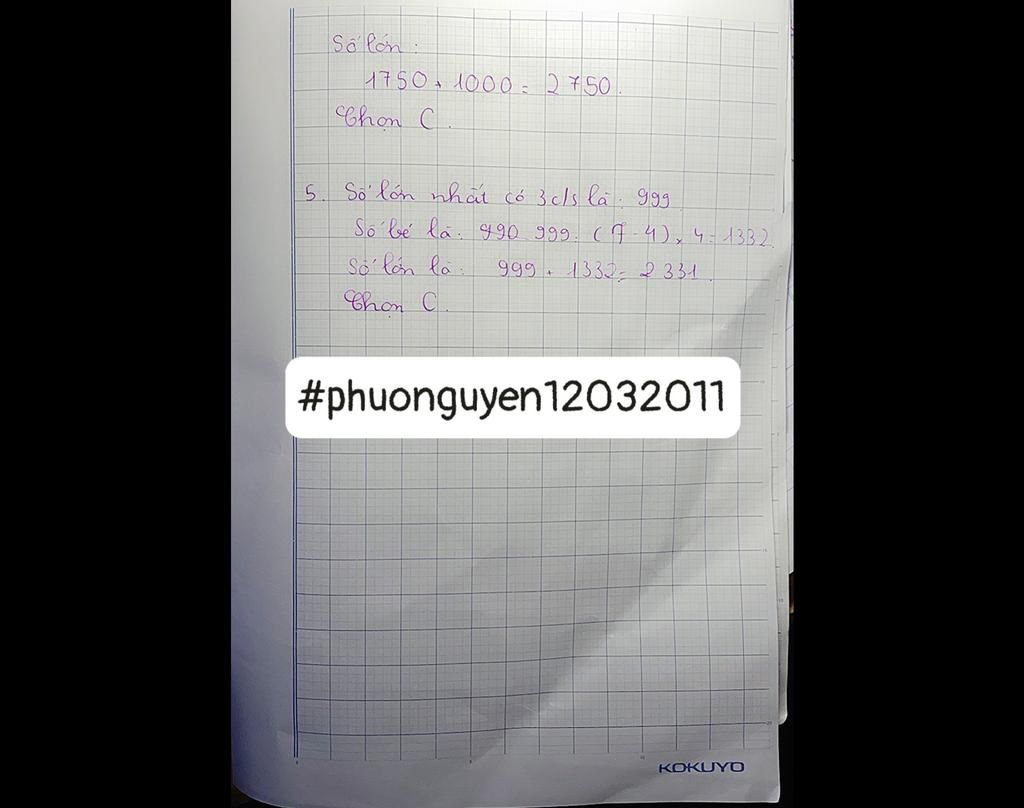 Số lớn:
1750 + 1000 = 2750.
Chọn C.
5. Số lớn nhất có 3 c/s là: 999
Số bé là: 999: (7-4) x 4 = 1332.
Số lớn là: 999 + 1332 = 2331.
Chọn C.
#phuonguyen12032011
KOKUYO